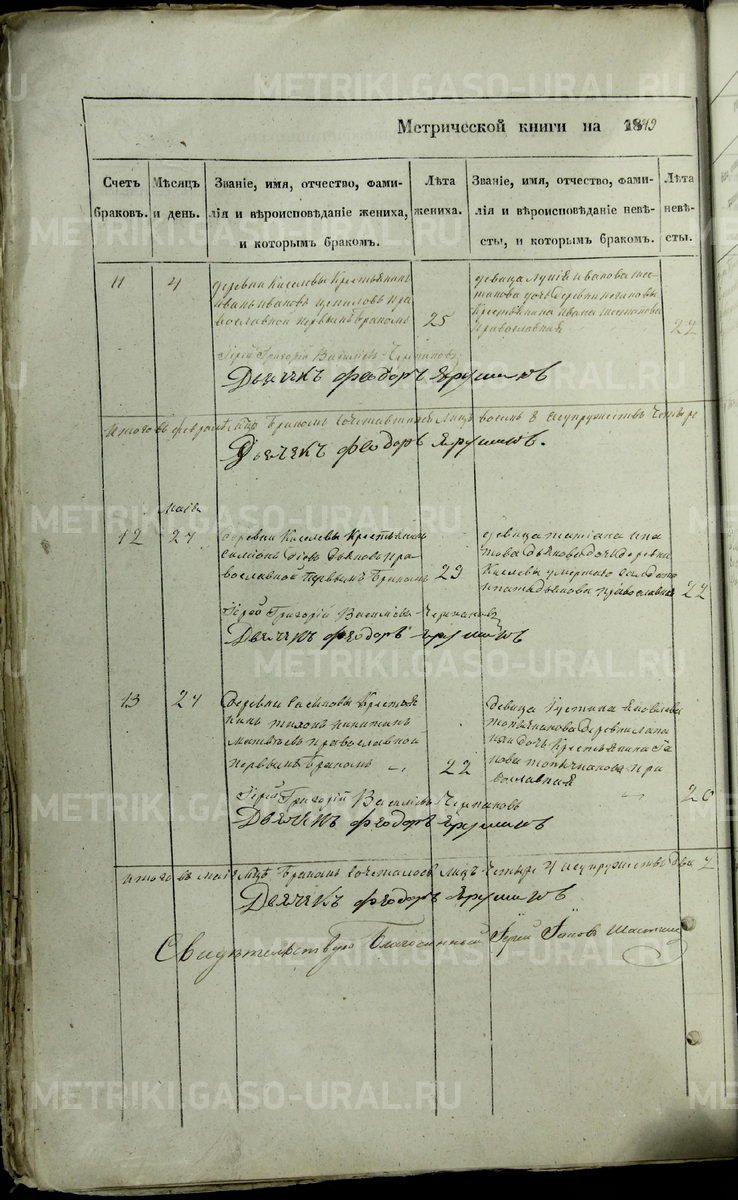 METRIKI.GASO-URAL.RU
Метрической книги на 1849
Счетъ браковъ.
Мѣсяцъ и день.
Званіе, имя, отчество, фами-
лія и вѣроисповѣданіе жениха,
и которымъ бракомъ.
Лѣта жениха.
Званіе, имя, отчество, фами-
лія и вѣроисповѣданіе невѣ-
сты, и которымъ бракомъ.
Лѣта невѣ-
сты.
11
4
деревни Киселевы Крестьянинъ
Иванъ Ивановъ пра
вославной первымъ бракомъ
25
девица Иванова
дочь деревни
Крестьянина Ивана
православная
22
Іерей Григорій Василіевъ Черпаковъ
Дьячекъ Феодоръ Ярушинъ
Итого въ феврале мцѣ бракомъ сочетавшихся лицъ восемь 8 а супружествъ четыре
Дьячекъ Феодоръ Ярушинъ.
маія
12
27
деревни Киселевы Крестьянинъ
Дьяковъ пра
вославной первымъ бракомъ
23
девица татіана ипа
това Дьякова дочь деревни
Киселевы умершаго солдата
ипата дьякова православная
22
Іерей Григорій Василіевъ Черпаковъ
Дьячекъ Феодоръ Ярушинъ
13
27
Деревни Крестья
нинъ тихонъ никитинъ
Матвеевъ православной
первымъ бракомъ
22
девица Устина Яковлева
деревни
дочь Крестьянина Я
кова пра
вославная
20
Іерей Григорій Василіевъ Черпаковъ
Дьячекъ Феодоръ Ярушинъ
Итого въ маіе мцѣ бракомъ сочеталось лицъ четыре 4 а супружествъ два 2
Дьячекъ Феодоръ Ярушинъ
Свидѣтельствую Благочинный Іерей Іаковъ